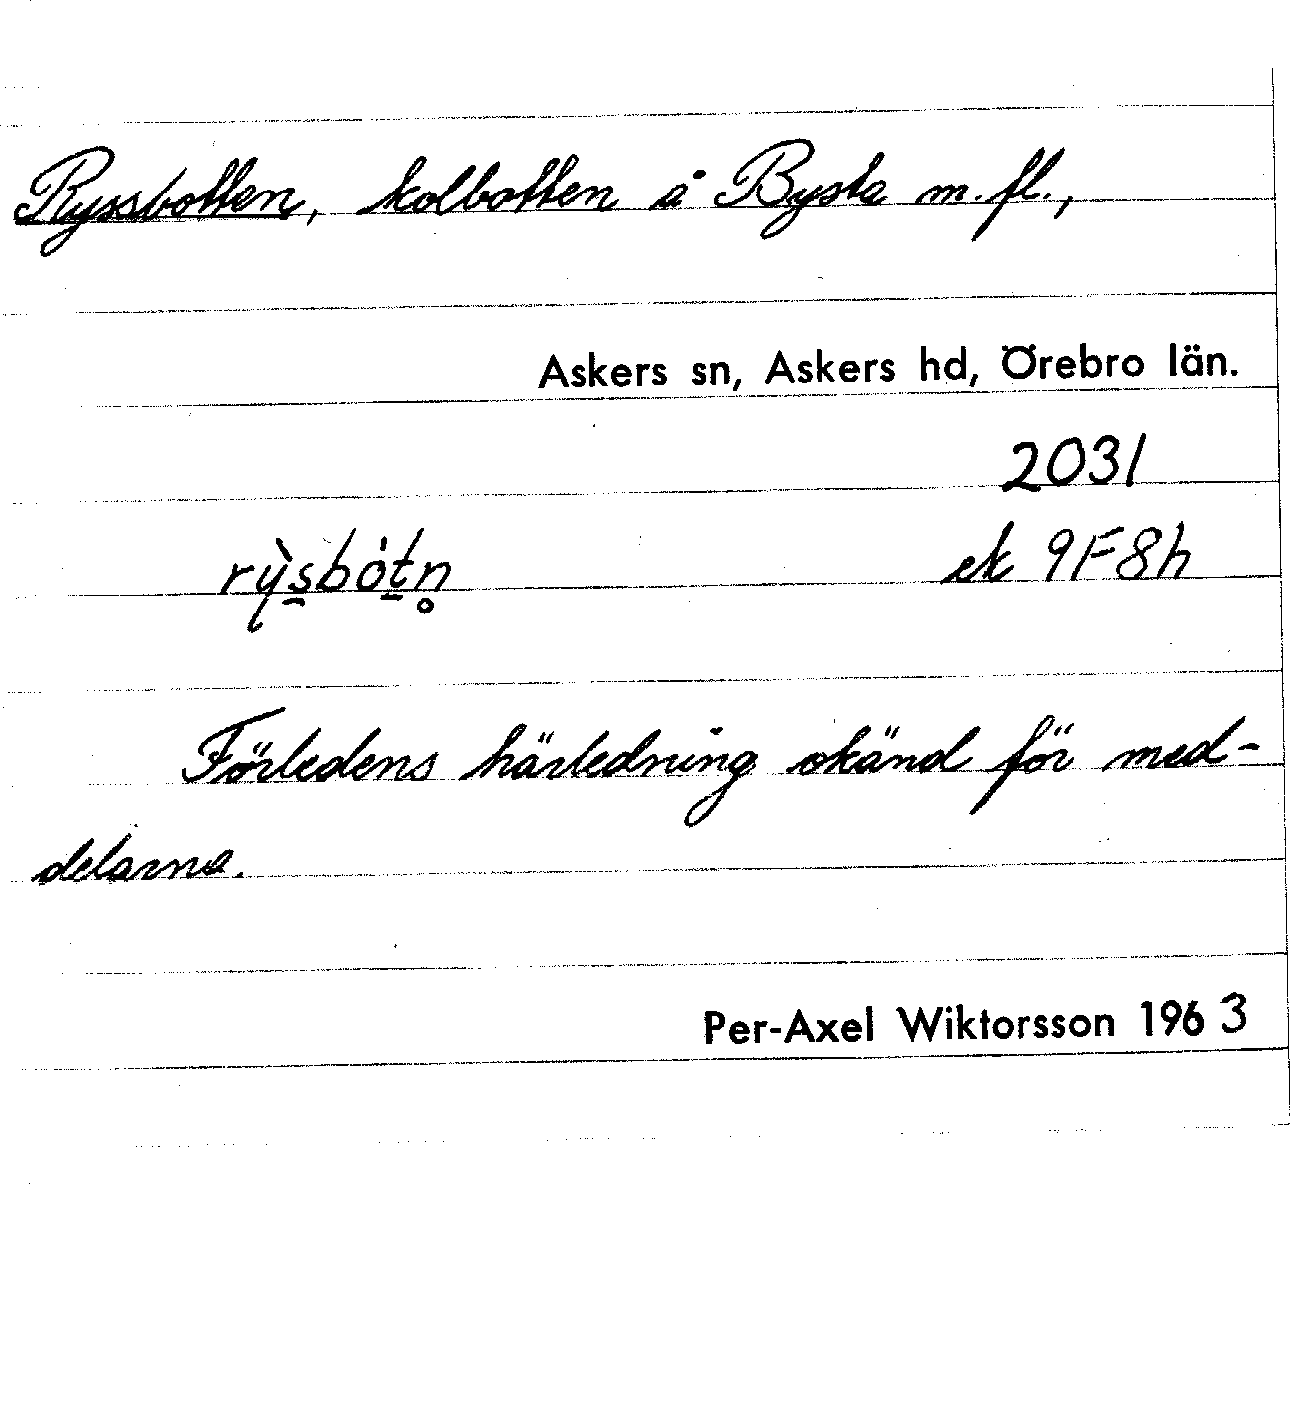 Ryssbotten, kolbotten å Bysta m.fl.,
Askers sn, Askers hd, Örebro län.
2031
rỳs̱bót̲n̥ ek 9F8h
Förledens härledning okänd för med-
delarna.
Per-Axel Wiktorsson 1963